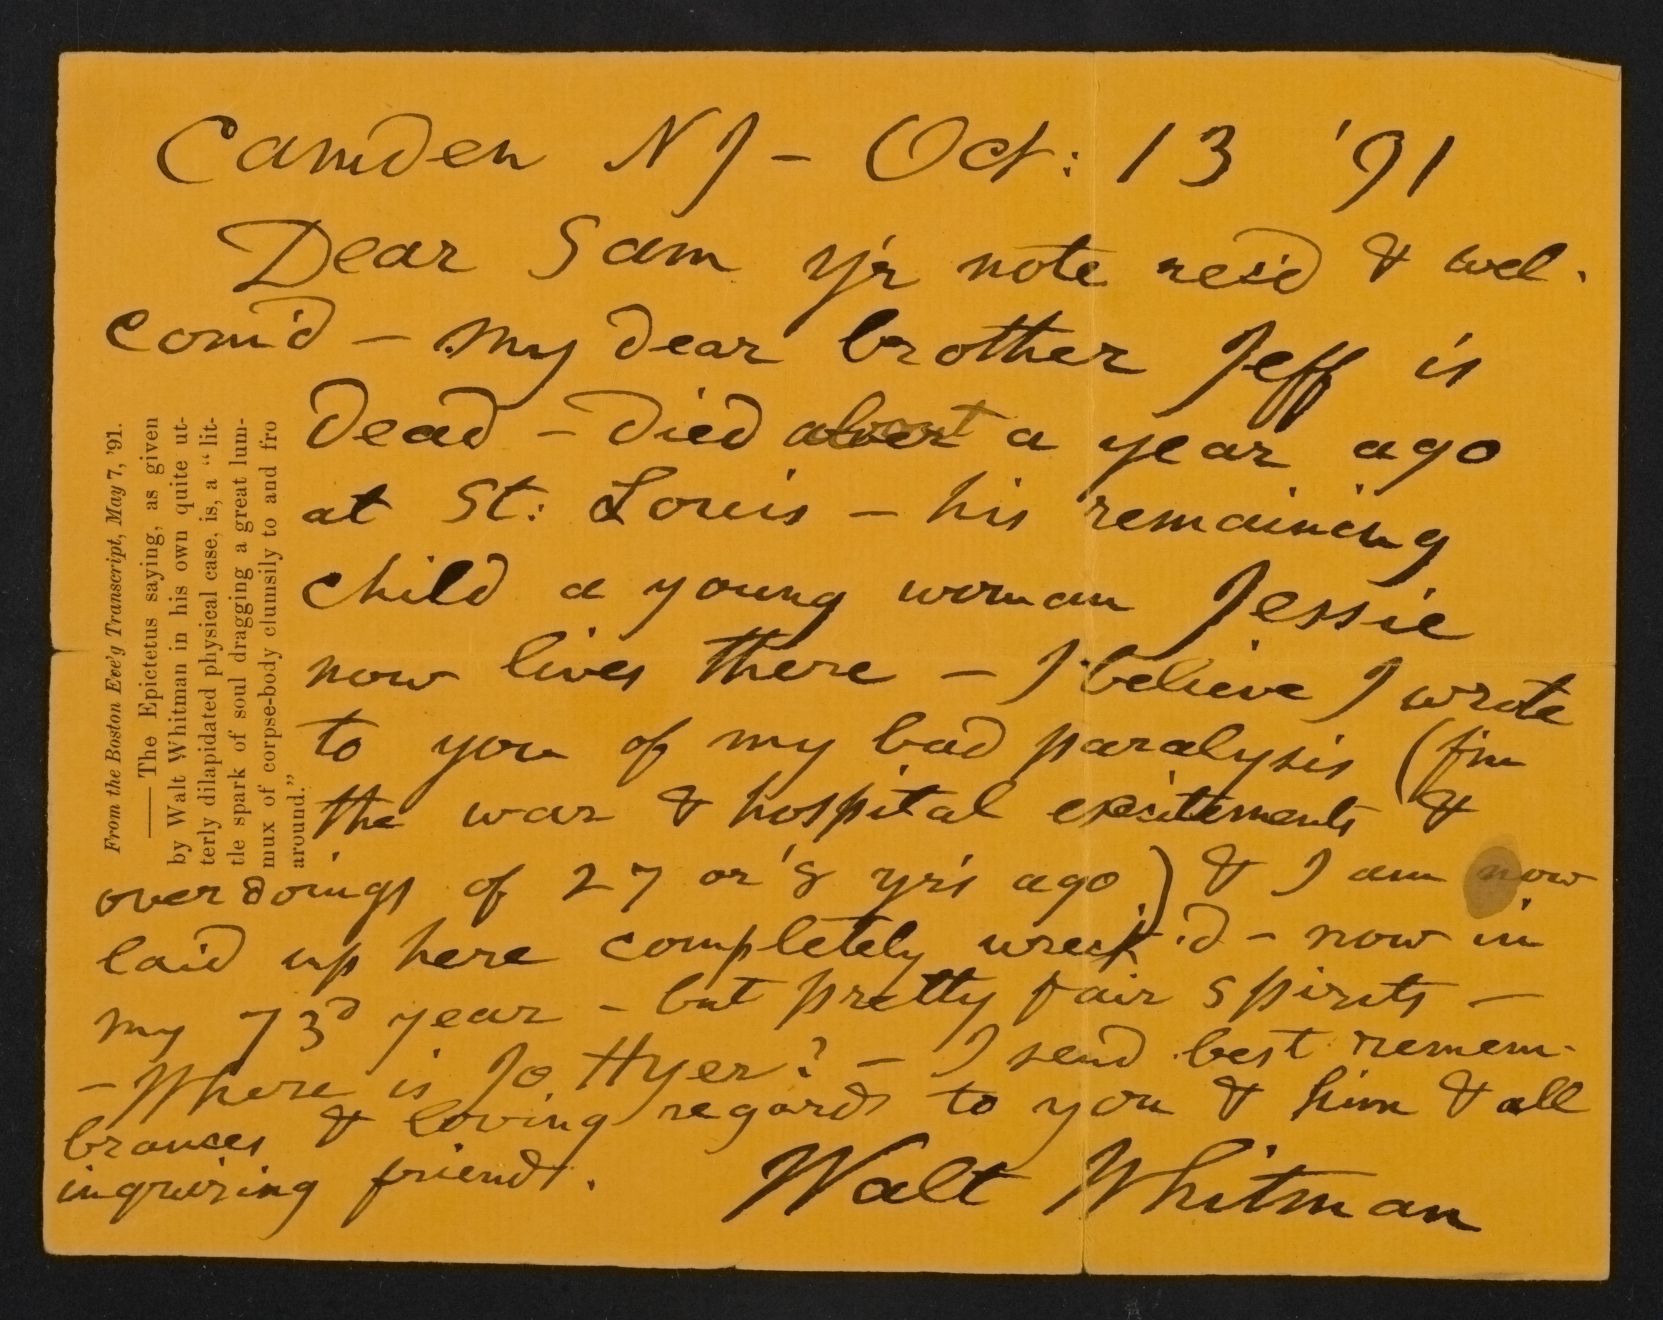 Camden N J – Oct: 13 '91
Dear Sam y'r note rec'd & wel-
com'd – My dear brother Jeff is
dead – died about a year ago
at St: Louis – his remaining
child a young woman Jessie
now lives there – I believe I wrote
to you of my bad paralysis (f'm
the war & hospital excitements &
over doings of 27 or '8 y'rs ago) & I am now
laid up here completely wreck'd – now in
my 73d year – but pretty fair spirits –
– Where is Jo Hyer? – I send best remem-
brances & loving regards to you & him & all
inquiring friends.
Walt Whitman
From the Boston Eve'g Transcript, May 7, '91.
—— The Epictetus saying, as given
by Walt Whitman in his own quite ut-
terly dilapidated physical case, is, a "lit-
tle spark of soul dragging a great lum-
mux of corpse-body clumsily to and fro
around."